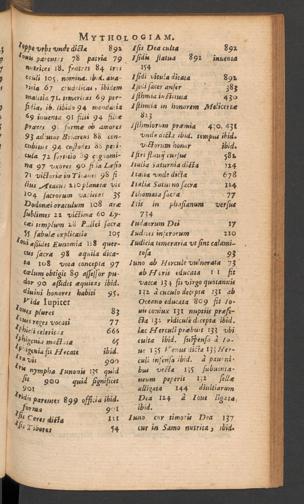 MYTHOLOGIAM.
Ioppe vrbs vnde dicta 892
Iouis parentes 78 patria 79
nutrices 18. fratres 84 tres
oculi 105. nomina. ibid. aua-
ritia 67 crudelitas, ibidem
malitia 71. temeritas 69 per-
fidia, ib. libido 94 mendacia
69 iuuenta 91 filii 94 filiæ
93 aduersus 88
cula 72 fortitudo 89 cognomi-
na 97 vxores 90 filia Læsis
71 victoria in Titanes 98 fi-
lius Aeacus 210 planeta vis
104 sacrorum varietas 35
Dodonæi oraculum 108 aræ
sublimes 22 victima 60 Ly-
cæi templum 28 sacra
35 fabulæ explicatio 105
Ioui assidet Eunomia 118 quer-
cus sacra 98 aquila dica-
ta 108 vota concepta 97
cælum obtigit 89 assessor pu-
dor 90 assidet æquitas ibid.
diuini honores habiti 95.
Vide Iupiter
Ioues plures 83
Ioues reges vocati 77
sceleritas 666
Iphigenia mactata 65
Iphigenia fit Hecate ibid.
Ira vis 900
Iris nympha Iunonis 135 quid
sit 900 quid significet
901
Iridis parentes 899 officia ibid.
forma 901
Isis Ceres dicta 111
54
Isis Dea culta 892
Isidis statua 892 inuenta
154
Isidi vitula dicata 892
Isidi sacer anser 383
Isthmia instituta 430
Isthmia in honorem Melicertæ
823
Isthmiorum præmia 430. 431
vnde dicta ibid. tempus ibid.
victorum honor ibid.
Istri fluuij cursus 582
Italia Saturnia dicta 124
Italia vnde dicta 678
Italia Saturno sacra 124
Ithomæa sacra 77
Itis in phasianum versus
734
Iudæorum Dei 17
Iudices inferorum 210
Iudicia temeraria vt sint calami-
tosa 93
Iuno ab Hercule vulnerata 75
ab Horis educata 11 fit
vacca 134 fit virgo quotannis
132 à cuculo decepta 131 ab
Oceano educata 809 fit Io-
uis coniux 131 nuptiis præfe-
cta 132 ridiculè decepta ibid.
lac Herculi præbuit 133 vbi
culta ibid. suspensa à Io-
ue 135 Venus dicta 135 Her-
culi infensa ibid. à pauoni-
bus vecta 135 subuenta-
neum peperit 132 sellæ
alligata 144 diuitiarum
Dea 124 à Ioue ligata,
ibid.
Iuno cur timoris Dea 137
cur in Samo nutrita, ibid.